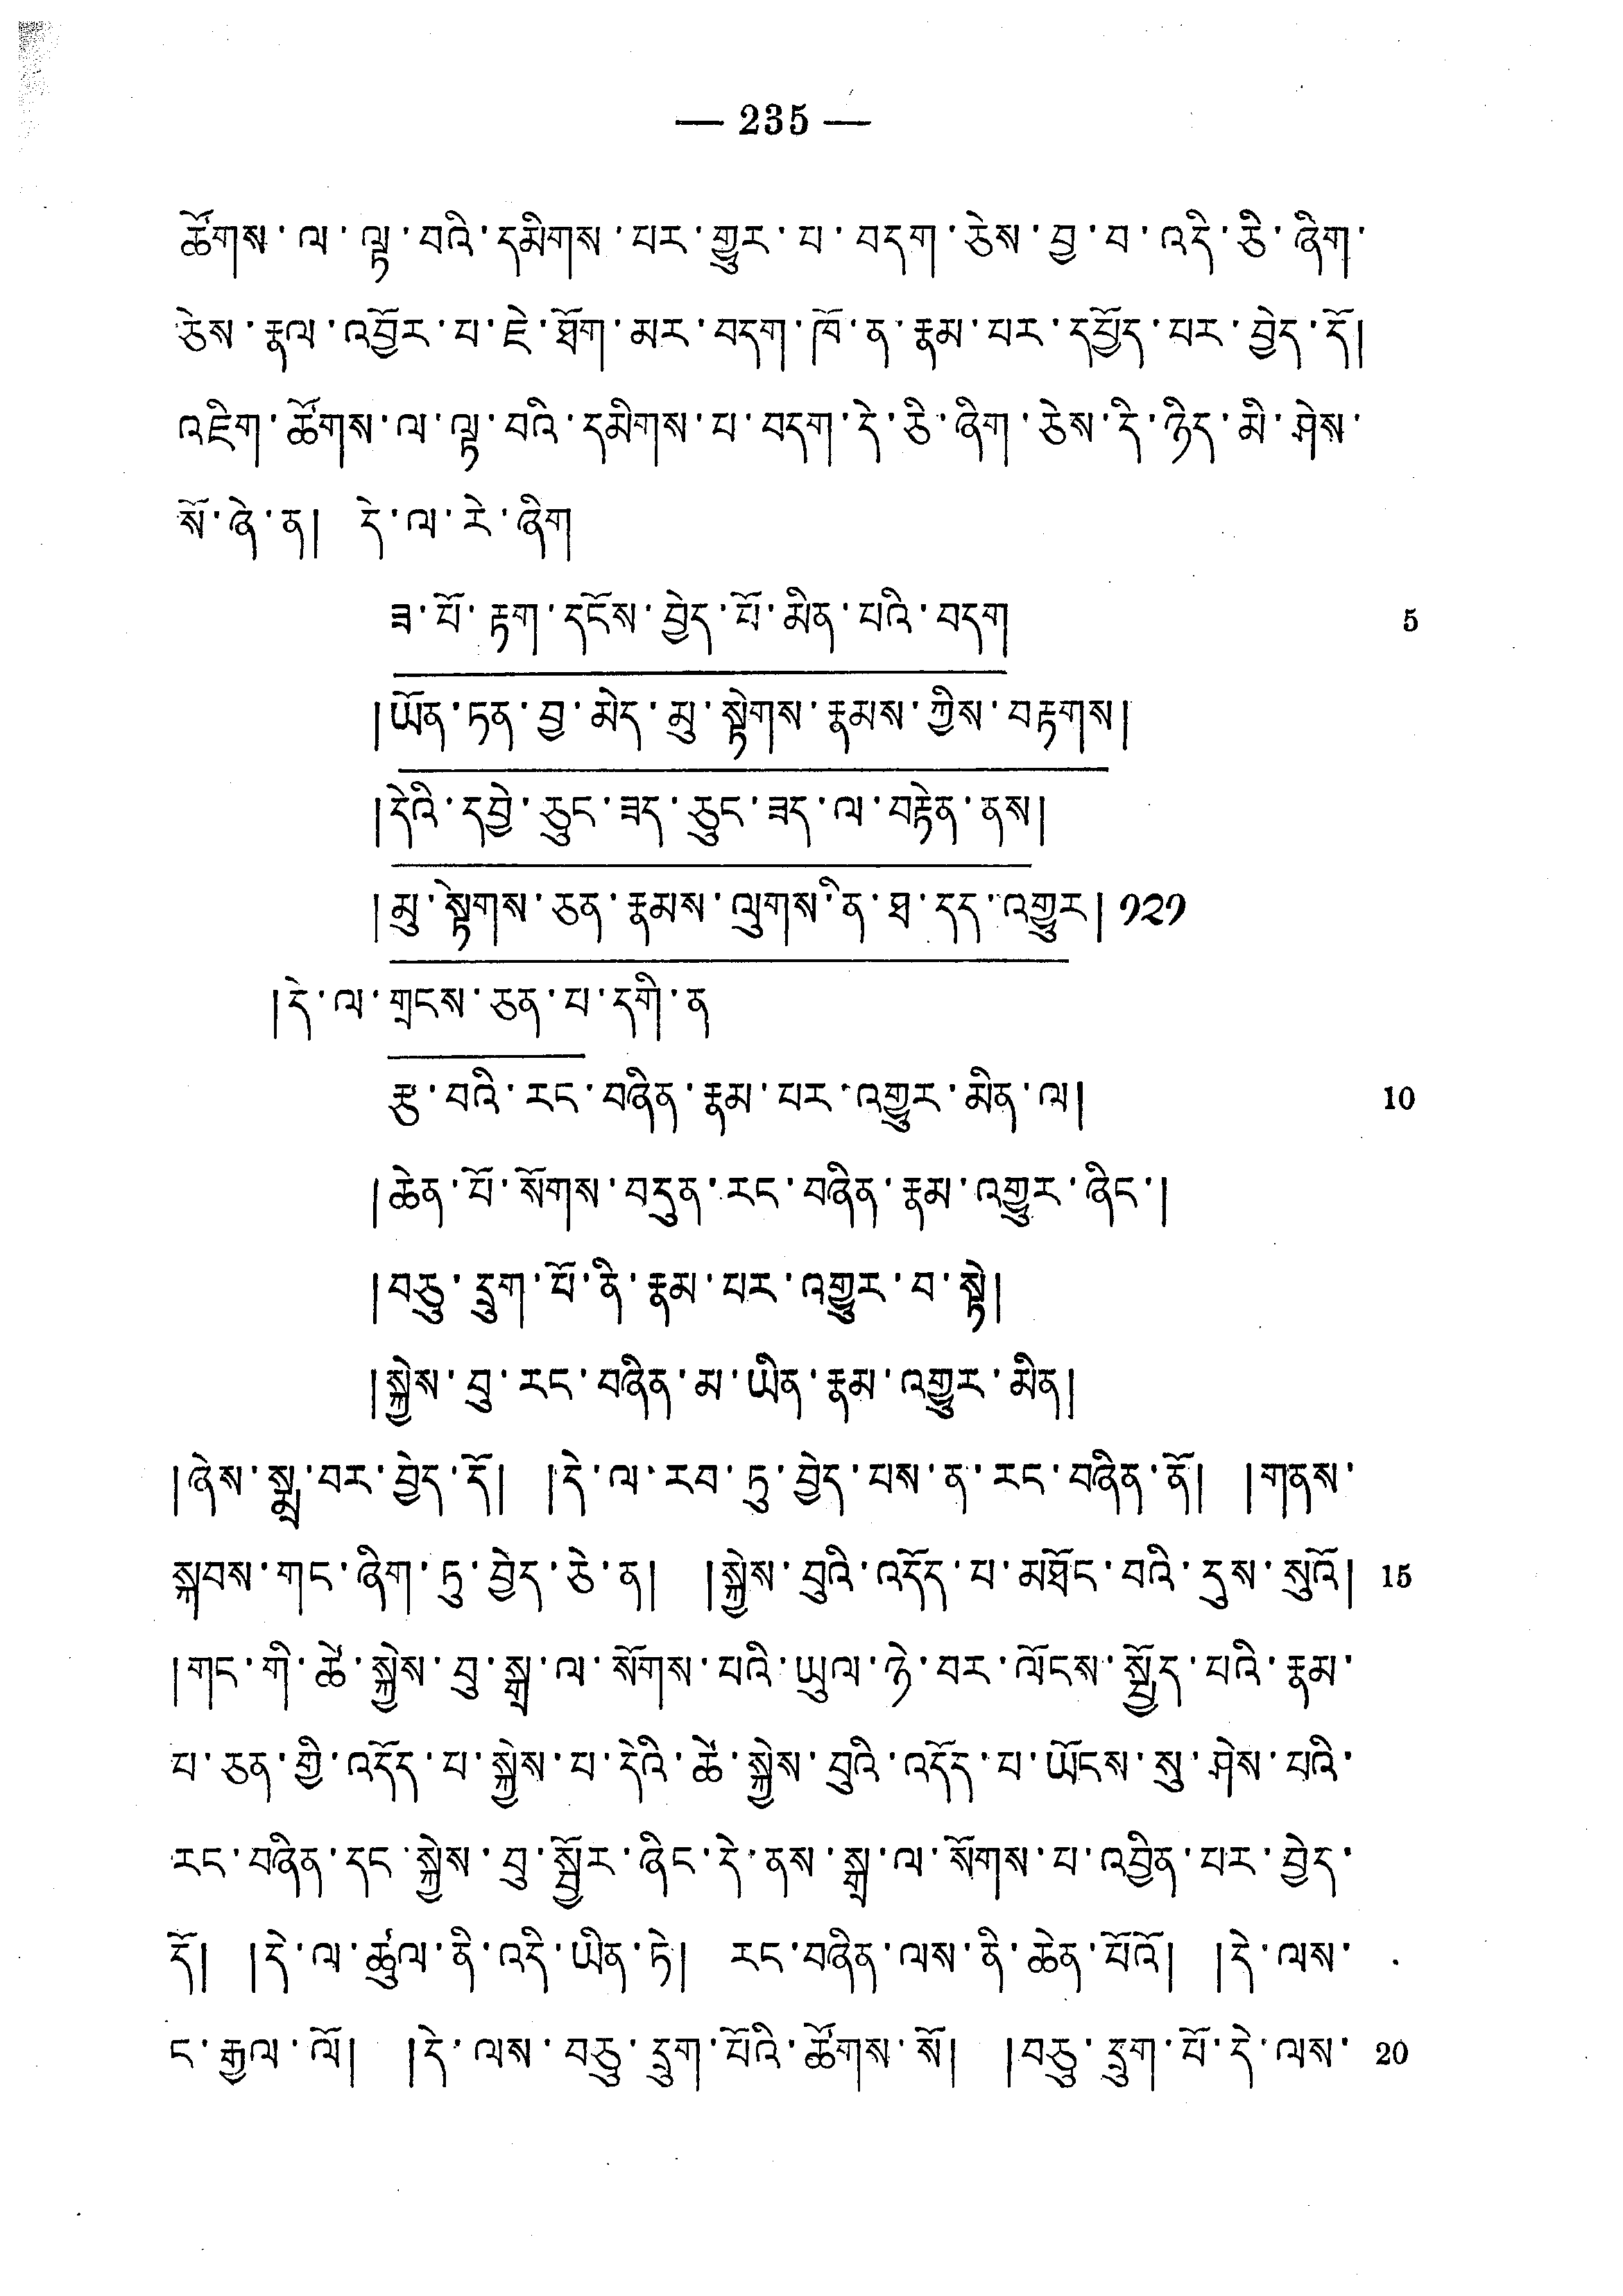 — 235 —
ཚོགས་ལ་ལྟ་བའི་དམིགས་པར་གྱུར་པ་བདག་ཅེས་བྱ་བ་འདི་ཅི་ཞིག་
ཅེས་རྣལ་འབྱོར་པ་ཇེ་ཐོག་མར་བདག་ཁོ་ན་རྣམ་པར་དཔྱོད་པར་བྱེད་དོ།
འཇིག་ཚོགས་ལ་ལྟ་བའི་དམིགས་པ་བདག་དེ་ཅི་ཞིག་ཅེས་དེ་ཉིད་མི་ཤེས་
སོ་ཞེ་ན། དེ་ལ་རེ་ཞིག
ཟ་པོ་རྟག་དངོས་བྱེད་པོ་མིན་པའི་བདག 5
།ཡོན་ཏན་བྱ་མེད་མུ་སྟེགས་རྣམས་ཀྱིས་བརྟགས།
།དེའི་དབྱེ་ཅུང་ཟད་ཅུང་ཟད་ལ་བརྟེན་ནས།
།མུ་སྟེགས་ཅན་རྣམས་ལུགས་ནི་ཐ་དད་འགྱུར། ༡༢༡
།དེ་ལ་གྲངས་ཅན་པ་དག་ནི
རྩ་བའི་རང་བཞིན་རྣམ་པར་འགྱུར་མིན་ལ། 10
།ཆེན་པོ་སོགས་བདུན་རང་བཞིན་རྣམ་འགྱུར་ཞིང་།
།བཅུ་དྲུག་པོ་ནི་རྣམ་པར་འགྱུར་བ་སྟེ།
།སྐྱེས་བུ་རང་བཞིན་མ་ཡིན་རྣམ་འགྱུར་མིན།
།ཞེས་སྨྲ་བར་བྱེད་དོ། །དེ་ལ་རབ་ཏུ་བྱེད་པས་ན་རང་བཞིན་ནོ། །གནས་
སྐབས་གང་ཞིག་ཏུ་བྱེད་ཅེ་ན། །སྐྱེས་བུའི་འདོད་པ་མཐོང་བའི་དུས་སུའོ། 15
།གང་གི་ཚེ་སྐྱེས་བུ་སྒྲ་ལ་སོགས་པའི་ཡུལ་ཉེ་བར་ལོངས་སྤྱོད་པའི་རྣམ་
པ་ཅན་གྱི་འདོད་པ་སྐྱེས་པ་དེའི་ཚེ་སྐྱེས་བུའི་འདོད་པ་ཡོངས་སུ་ཤེས་པའི་
རང་བཞིན་དང་སྐྱེས་བུ་སྦྱོར་ཞིང་དེ་ནས་སྒྲ་ལ་སོགས་པ་འབྱིན་པར་བྱེད་
དོ། །དེ་ལ་ཚུལ་ནི་འདི་ཡིན་ཏེ། རང་བཞིན་ལས་ནི་ཆེན་པོའོ། །དེ་ལས་
ང་རྒྱལ་ལོ། །དེ་ལས་བཅུ་དྲུག་པོའི་ཚོགས་སོ། །བཅུ་དྲུག་པོ་དེ་ལས་ 20